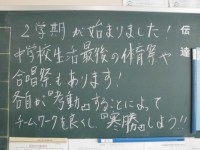 2学期が始まりました!
伝達
中学校生活最後の体育祭や
合唱祭もあります!
各自が『考動』することによって
チームワークを良くし、『寒勝』しよう!!